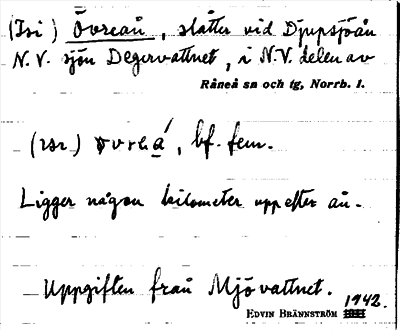 (Isi) Övreån, slåtter vid Djupsjöån
N.V. sjön Degervattnet, i N.V. delen av
Råneå sn och tg, Norrb. l.
bf. fem.
Ligger någon kilometer uppefter ån.
Uppgiften från Mjövattnet.
1942.
EDVIN BRÄNNSTRÖM